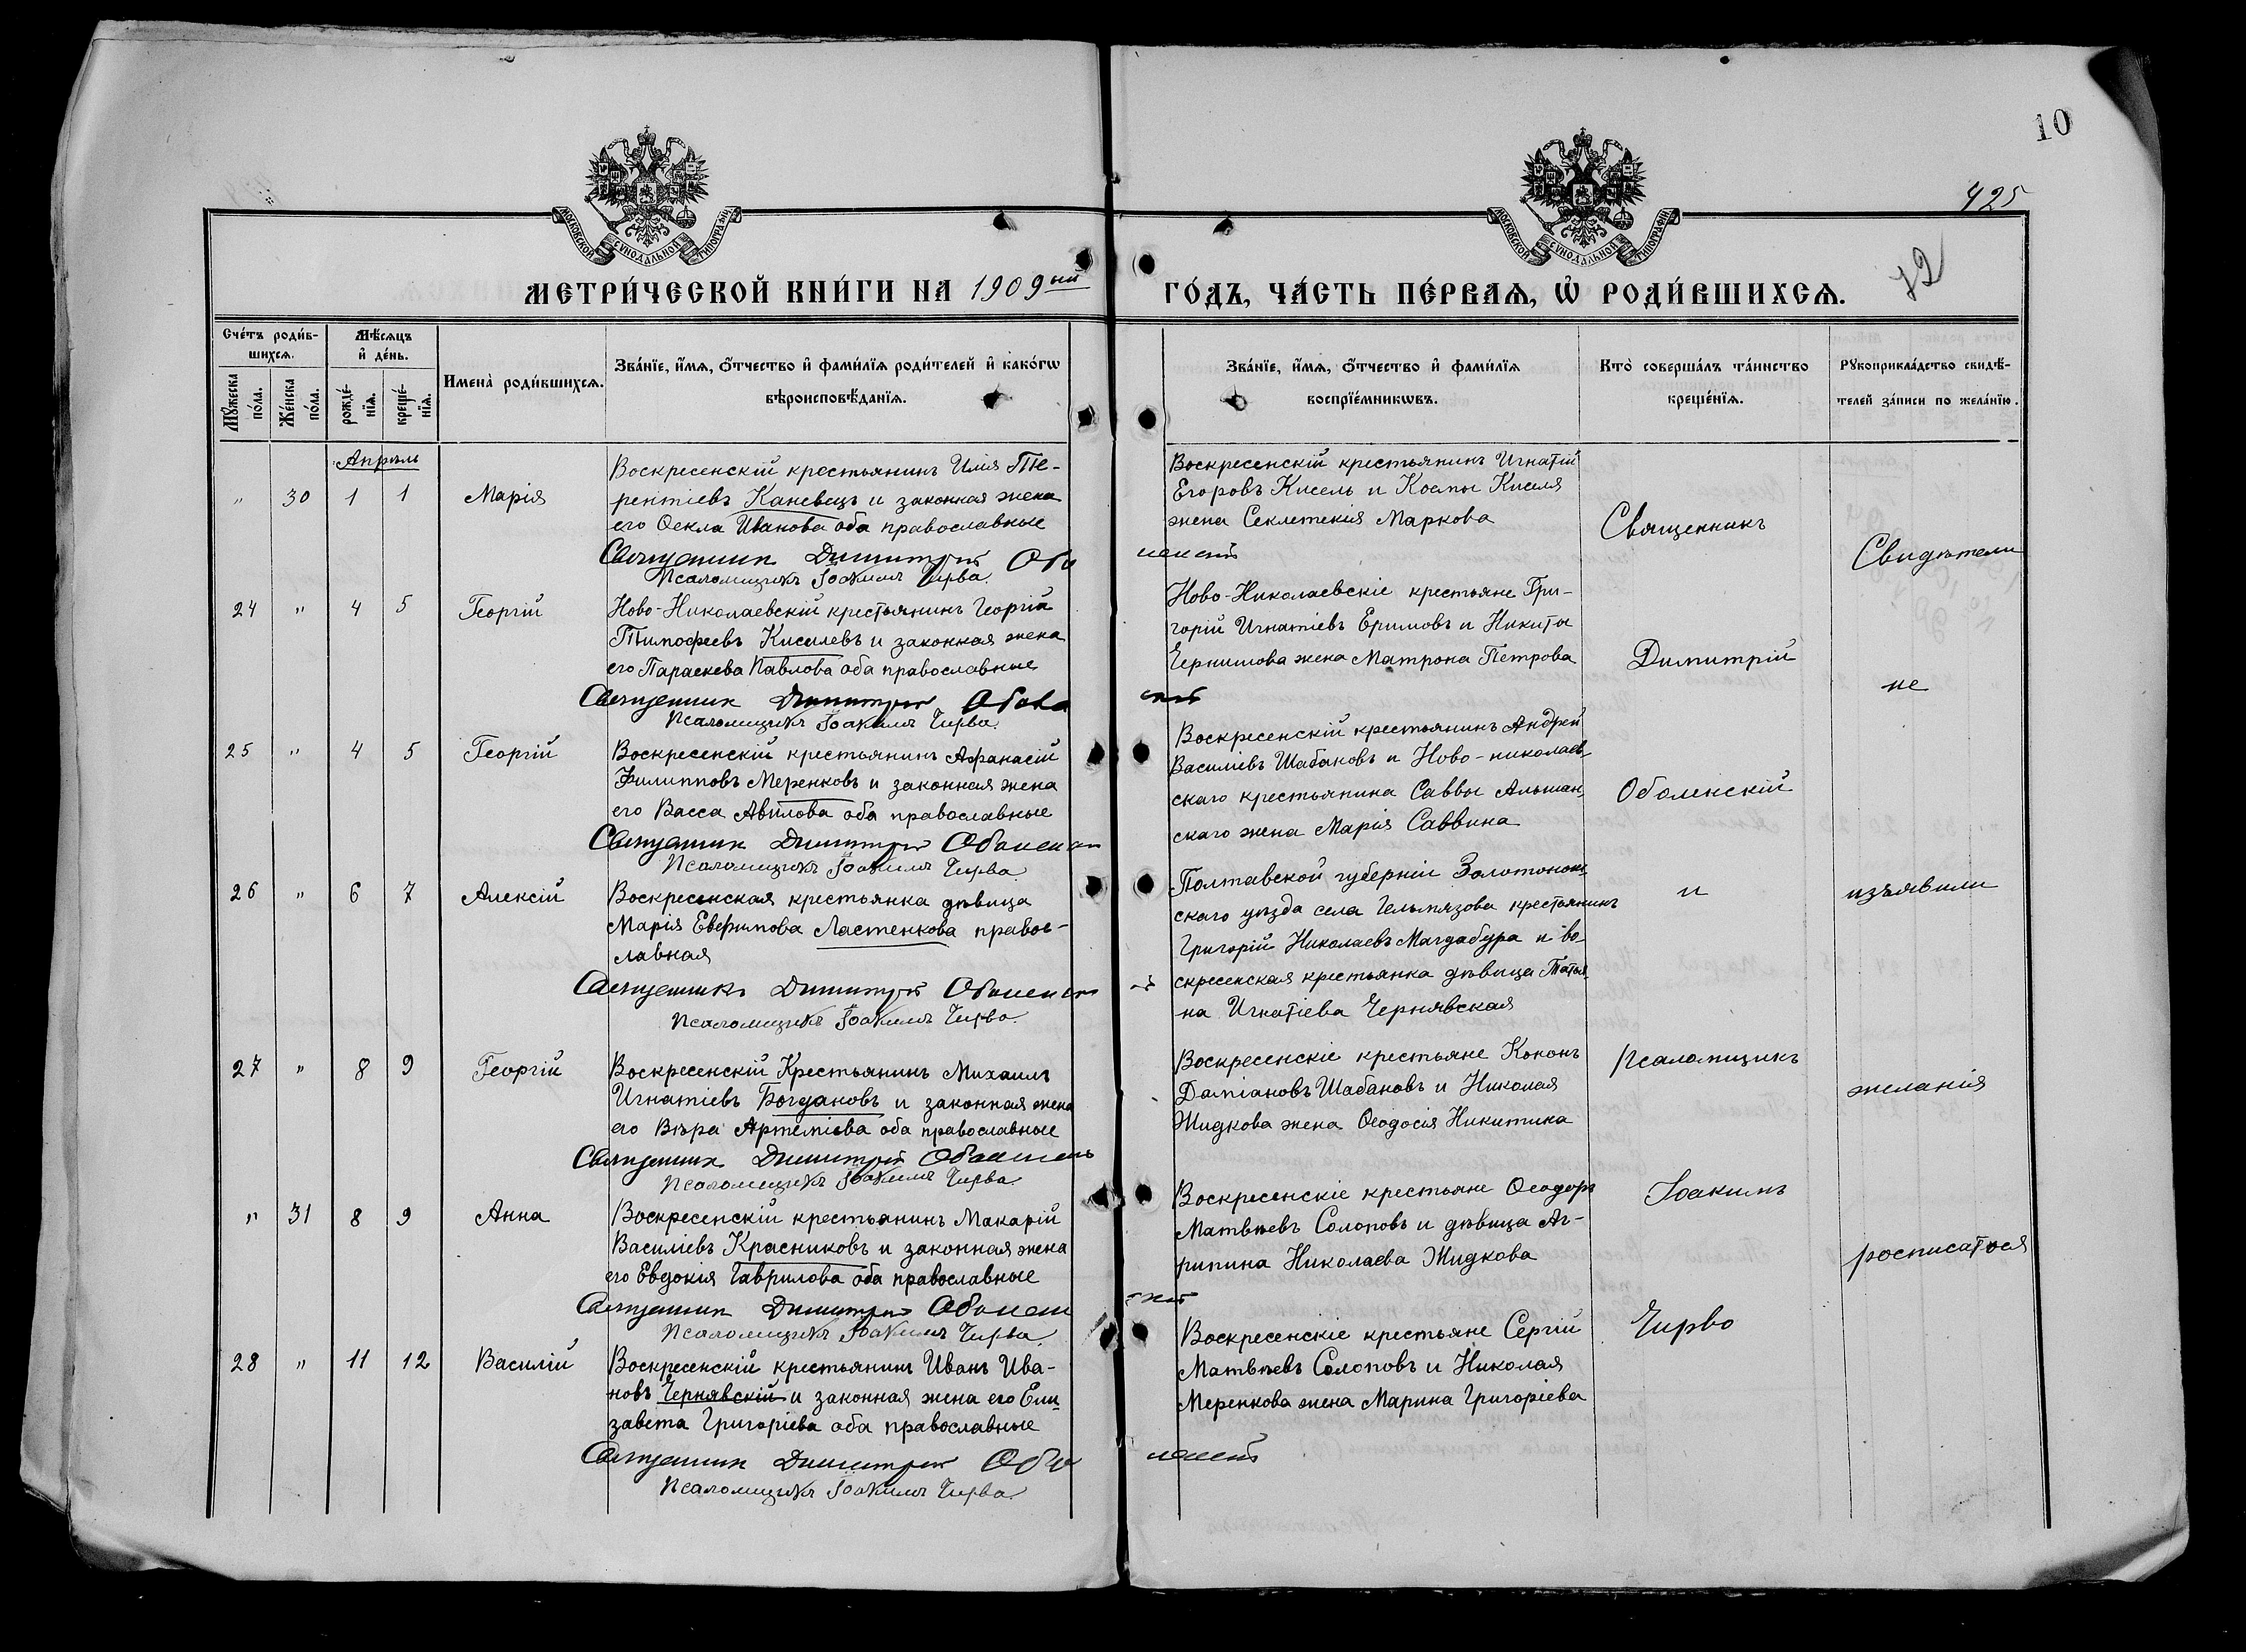 10
425
72
МОСКОВСКОЙ СѴНОДАЛЬНОЙ ТИПОГРАФІИ
МОСКОВСКОЙ СѴНОДАЛЬНОЙ ТИПОГРАФІИ
МЕТРИ́ЧЕСКОЙ КНИ́ГИ НА 1909ый
ГО́ДЪ, ЧА́СТЬ ПЕ́РВАѦ, Ѡ҆ РОДИ́ВШИХСѦ.
Сче́тъ роди́в-
шихсѧ.
Мѣ́сѧцъ
и҆ де́нь.
Мꙋ́жеска
по́ла.
Же́нска
по́ла.
рожде́-
нїѧ.
креще́-
нїѧ.
Имена̀ роди́вшихсѧ.
Зва́нїе, и҆́мѧ, ѻ҆́тчество и҆ фами́лїѧ роди́телей и҆ како́гѡ
вѣроисповѣ́данїѧ.
Зва́нїе, и҆́мѧ, ѻ҆́тчество и҆ фами́лїѧ
воспрїе́мникѡвъ.
Кто̀ соверша́лъ та́инство
креще́нїѧ.
Рꙋкоприкла́дство свидѣ́-
телей за́писи по жела́нїю.
Апрѣль
" 30 1 1 Марія
Воскресенскій крестьянинъ Илія Те-
рентіевъ Каневецъ и законная жена
его Ѳекла Иванова оба православные
Священникъ Димитрій Оболенскій
Псаломщикъ Іоакимъ Чирва.
Воскресенскій крестьянинъ Игнатій
Егоровъ Кисель и Космы Киселя
жена Секлетекія Маркова
24 " 4 5 Георгій
Ново-Николаевскій крестьянинъ Георгій
Тимофеевъ Киселевъ и законная жена
его Параскева Павлова оба православные
Священникъ Димитрій Оболенскій
Псаломщикъ Іоакимъ Чирва.
Ново-Николаевскіе крестьяне Гри-
горій Игнатіевъ Еримовъ и Никиты
Чернишова жена Матрона Петрова
25 " 4 5 Георгій
Воскресенскій крестьянинъ Афанасій
Филипповъ Меренковъ и законная жена
его Васса Авилова оба православные
Священникъ Димитрій Оболенскій
Псаломщикъ Іоакимъ Чирва.
Воскресенскій крестьянинъ Андрей
Василіевъ Шабановъ и Ново-николаев-
скаго крестьянина Саввы Альшан-
скаго жена Марія Саввина
26 " 6 7 Алексій
Воскресенская крестьянка дѣвица
Марія Евфимова Ластенкова правос-
лавная
Священникъ Димитрій Оболенскій
Псаломщикъ Іоакимъ Чирва.
Полтавской губерніи Золотонош-
скаго уѣзда села Гельмязова крестьянинъ
Григорій Николаевъ Магдабура и во-
скресенская крестьянка дѣвица Татья-
на Игнатіева Чернявская
27 " 8 9 Георгій
Воскресенскій Крестьянинъ Михаилъ
Игнатіевъ Богдановъ и законная жена
его Вѣра Артеміева оба православные
Священникъ Димитрій Оболенскій
Псаломщикъ Іоакимъ Чирва.
Воскресенскіе крестьяне Кононъ
Даміановъ Шабановъ и Николая
Жидкова жена Ѳеодосія Никитина
" 31 8 9 Анна
Воскресенскій крестьянинъ Макарій
Василіевъ Красниковъ и законная жена
его Евдокія Гаврилова оба православные
Священникъ Димитрій Оболенскій
Псаломщикъ Іоакимъ Чирва.
Воскресенскіе крестьяне Ѳеодоръ
Матвѣевъ Солоповъ и дѣвица Аг-
рипина Николаева Жидкова
28 " 11 12 Василій
Воскресенскій крестьянинъ Иванъ Ива-
новъ Чернявскій и законная жена его Ели-
завета Григоріева оба православные
Священникъ Димитрій Оболенскій
Псаломщикъ Іоакимъ Чирва.
Воскресенскіе крестьяне Сергій
Матвѣевъ Солоповъ и Николая
Меренкова жена Марина Григоріева
Священникъ
Димитрій
Оболенскій
и
Псаломщикъ
Іоакимъ
Чирво
Свидѣтели
не
изъявили
желанія
росписатося